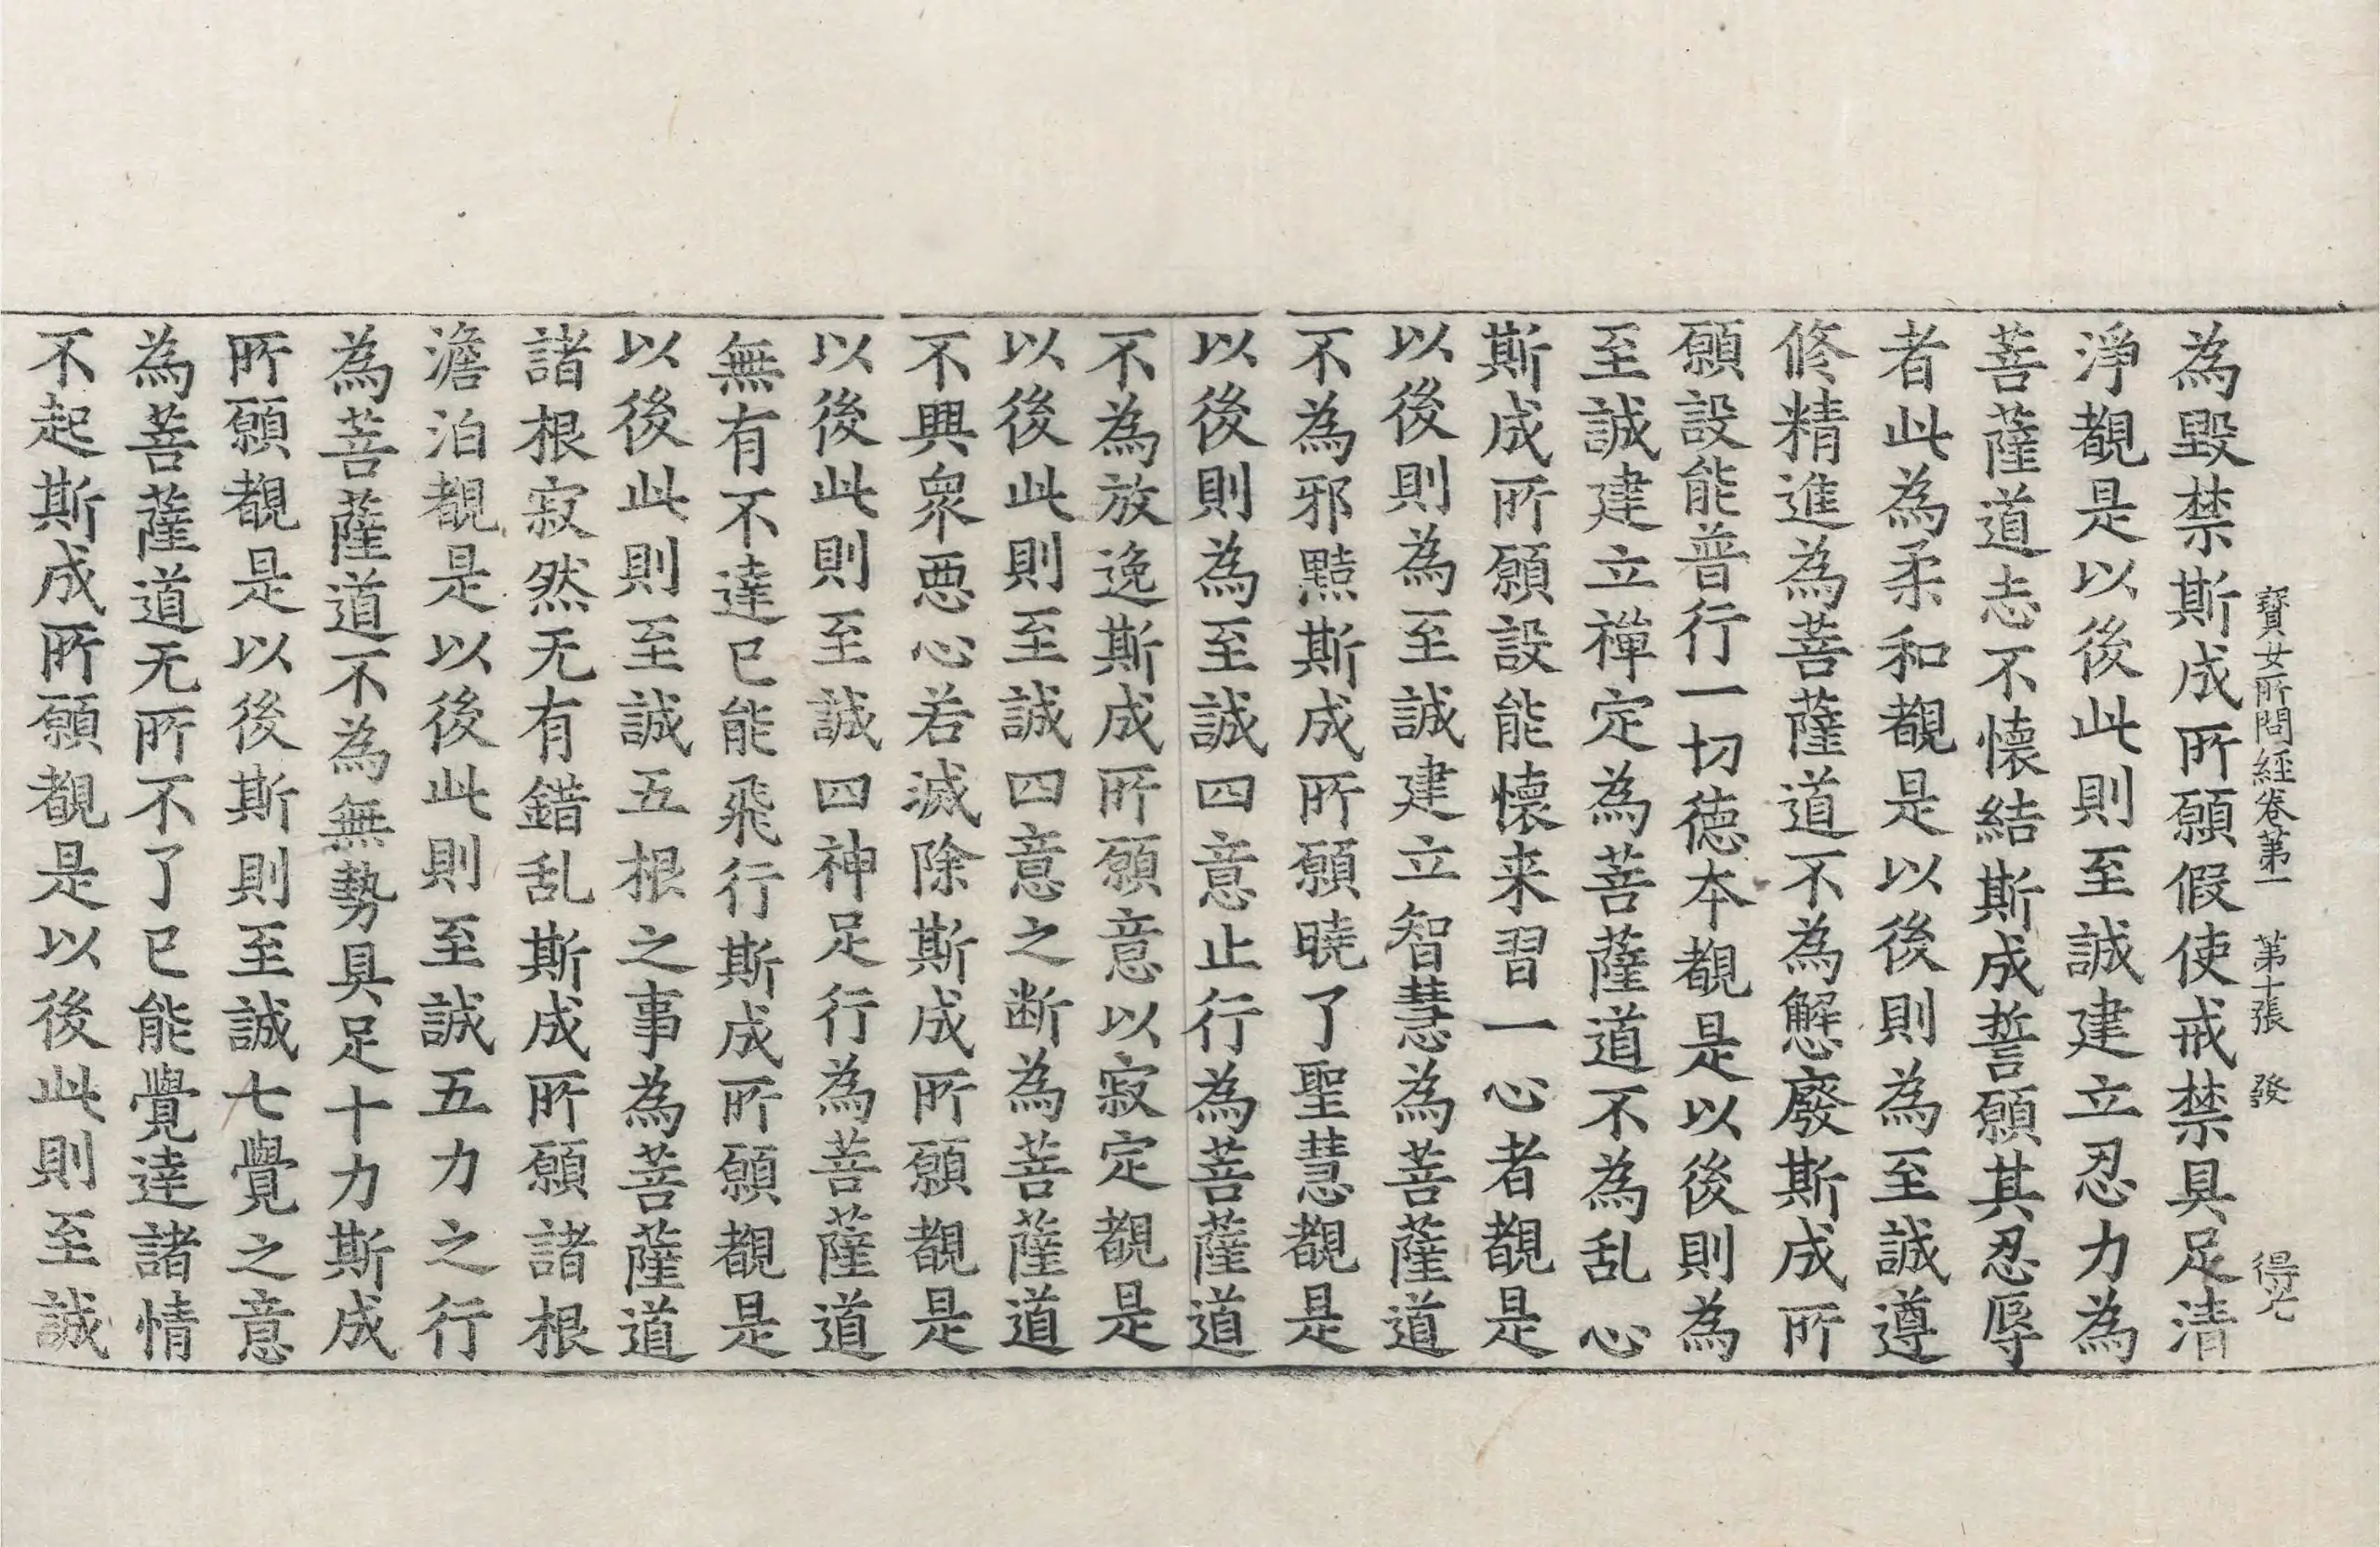 寶女所問經卷第一　第十張　發　得光
為毀禁斯成所願假使戒禁具足清
淨覩是以後此則至誠建立忍力為
菩薩道志不懷結斯成誓願其忍辱
者此為柔和覩是以後則為至誠遵
修精進為菩薩道不為懈廢斯成所
願設能普行一切德本覩是以後則為
至誠建立禪定為菩薩道不為乱心
斯成所願設能懷来習一心者覩是
以後則為至誠建立智慧為菩薩道
不為邪黠斯成所願曉了聖慧覩是
以後則為至誠四意止行為菩薩道
不為放逸斯成所願意以寂定覩是
以後此則至誠四意之断為菩薩道
不興衆惡心若滅除斯成所願覩是
以後此則至誠四神足行為菩薩道
無有不達已能飛行斯成所願覩是
以後此則至誠五根之事為菩薩道
諸根寂然无有錯乱斯成所願諸根
澹泊覩是以後此則至誠五力之行
為菩薩道不為無勢具足十力斯成
所願覩是以後斯則至誠七覺之意
為菩薩道无所不了已能覺達諸情
不起斯成所願覩是以後此則至誠